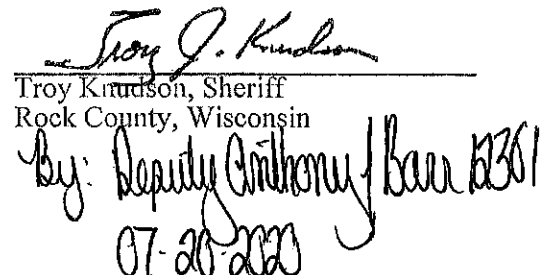 Troy J. Knudson
Troy Knudson, Sheriff
Rock County, Wisconsin
By: Deputy Anthony J Barr
07-20-2020